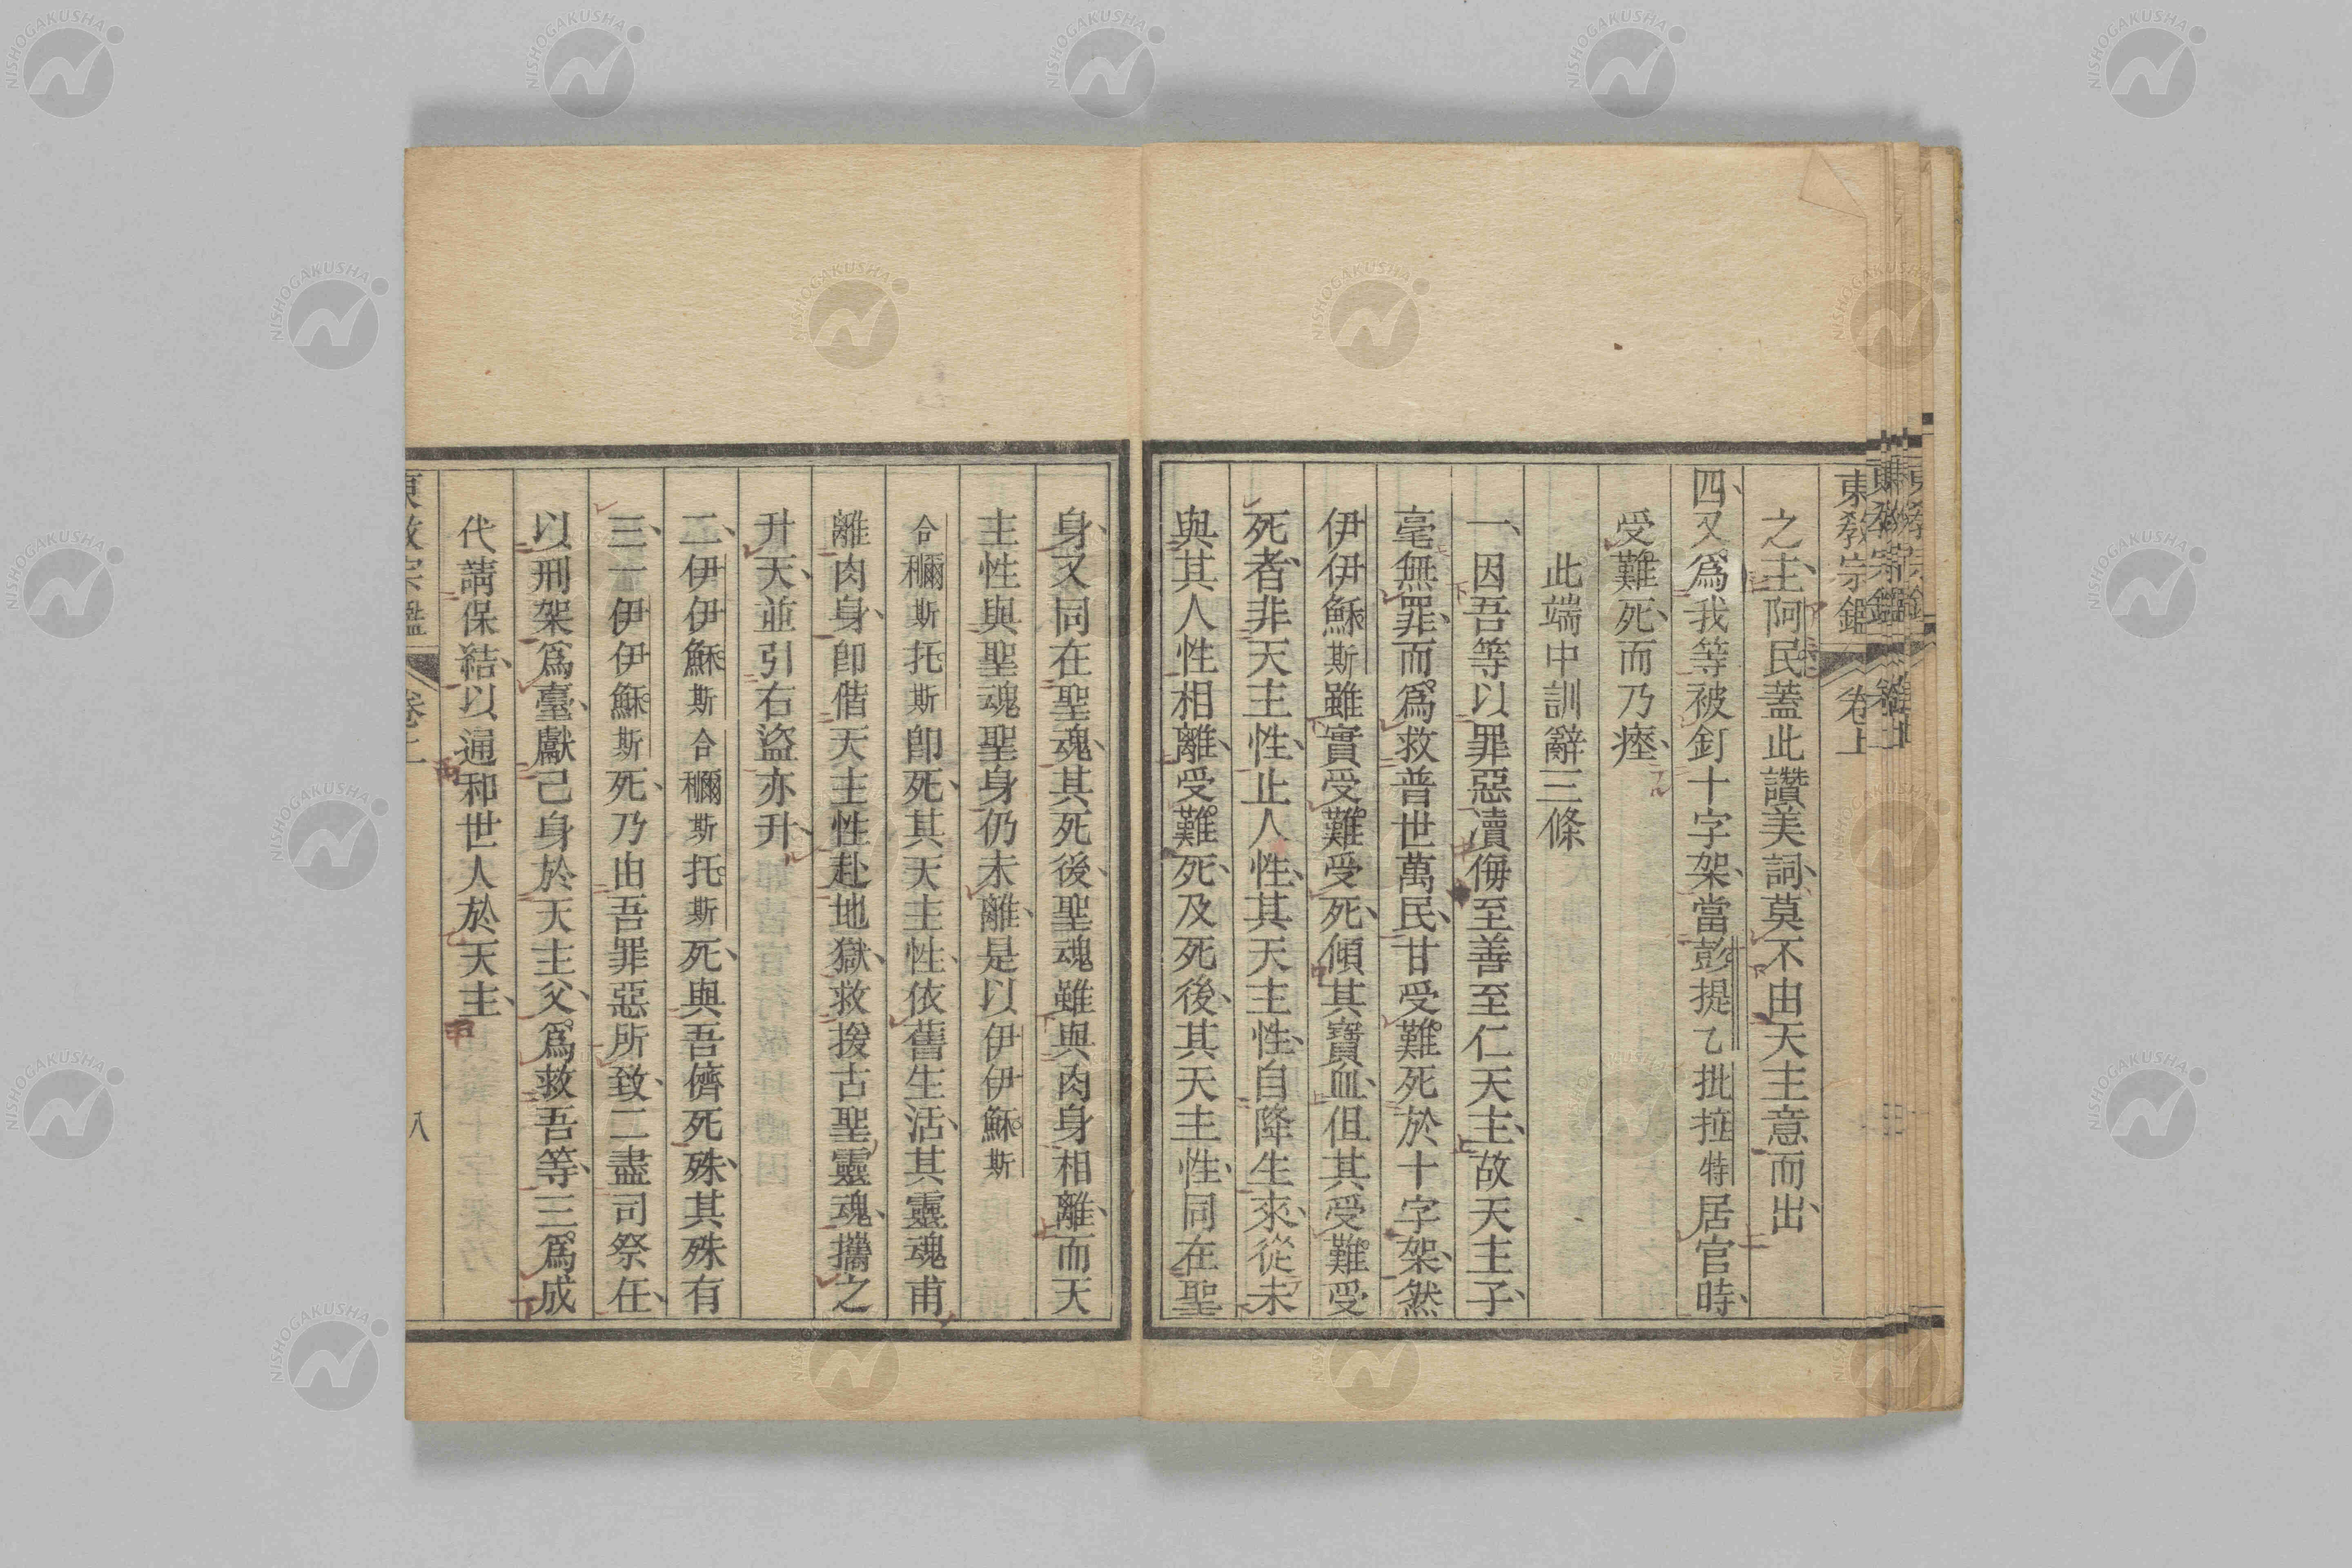 東教宗鑑 卷上
之主、阿民蓋此讚美詞、莫不由天主意而出、
四、又爲我等被釘十字架、當彭提乙批拉特居官時、
受難死、而乃瘞、
此端中訓辭三條
一、因吾等以罪惡瀆侮至善至仁天主、故天主子、
毫無罪、而爲救普世萬民、甘受難死於十字架、然
伊伊穌斯雖實受難受死、傾其寶血、但其受難受
死者、非天主性、止人性、其天主性、自降生來、從未
與其人性相離、受難死、及死後、其天主性、同在聖
身、又同在聖魂、其死後、聖魂雖與肉身相離、而天
主性與聖魂聖身仍未離、是以伊伊穌斯
合穪斯托斯卽死、其天主性、依舊生活、其靈魂甫
離肉身、卽偕天主性赴地獄、救援古聖靈魂、攜之
升天、並引右盜亦升、
二、伊伊穌斯合穪斯托斯死、與吾儕死殊、其殊有
三、一伊伊穌斯死、乃由吾罪惡所致、二盡司祭任、
以刑架爲臺、獻己身於天主父、爲救吾等、三爲成
代請保結、以通和世人於天主、
東教宗鑑 卷上 八
NISHOGAKUSHA